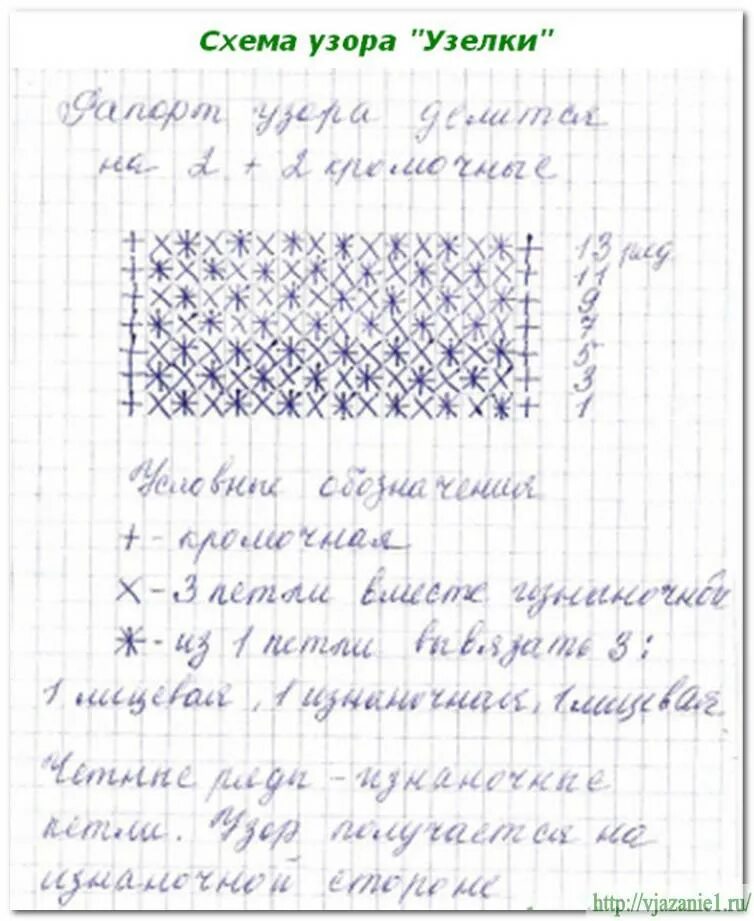 Схема узора "Узелки"
Рапорт узора делится
на 2 + 2 кромочные
+ X * X * X * X * X * X * X * + 13 ряд
+ * X * X * X * X * X * X * X + 11
+ X * X * X * X * X * X * X * + 9
+ * X * X * X * X * X * X * X + 7
+ X * X * X * X * X * X * X * + 5
+ * X * X * X * X * X * X * X + 3
+ X * X * X * X * X * X * X * + 1
Условные обозначения
+ - кромочная
X - 3 петли вместе изнаночной
* - из 1 петли вывязать 3:
1 лицевая, 1 изнаночная, 1 лицевая
Четные ряды - изнаночные
петли. Узор получается на
изнаночной стороне
http://vjazanie1.ru/